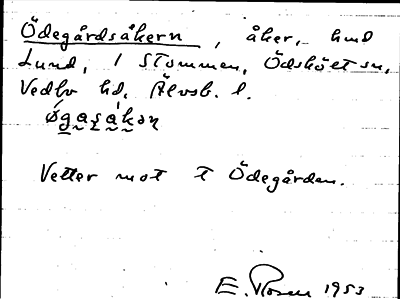 Ödegårdsåkern, åker, hmd
Lund, 1 Stommen, Ödskölt sn,
Vedbo hd, Älvsb. l.
Øgaṣåkən
Vetter mot t Ödegården.
E. Rosen 1953